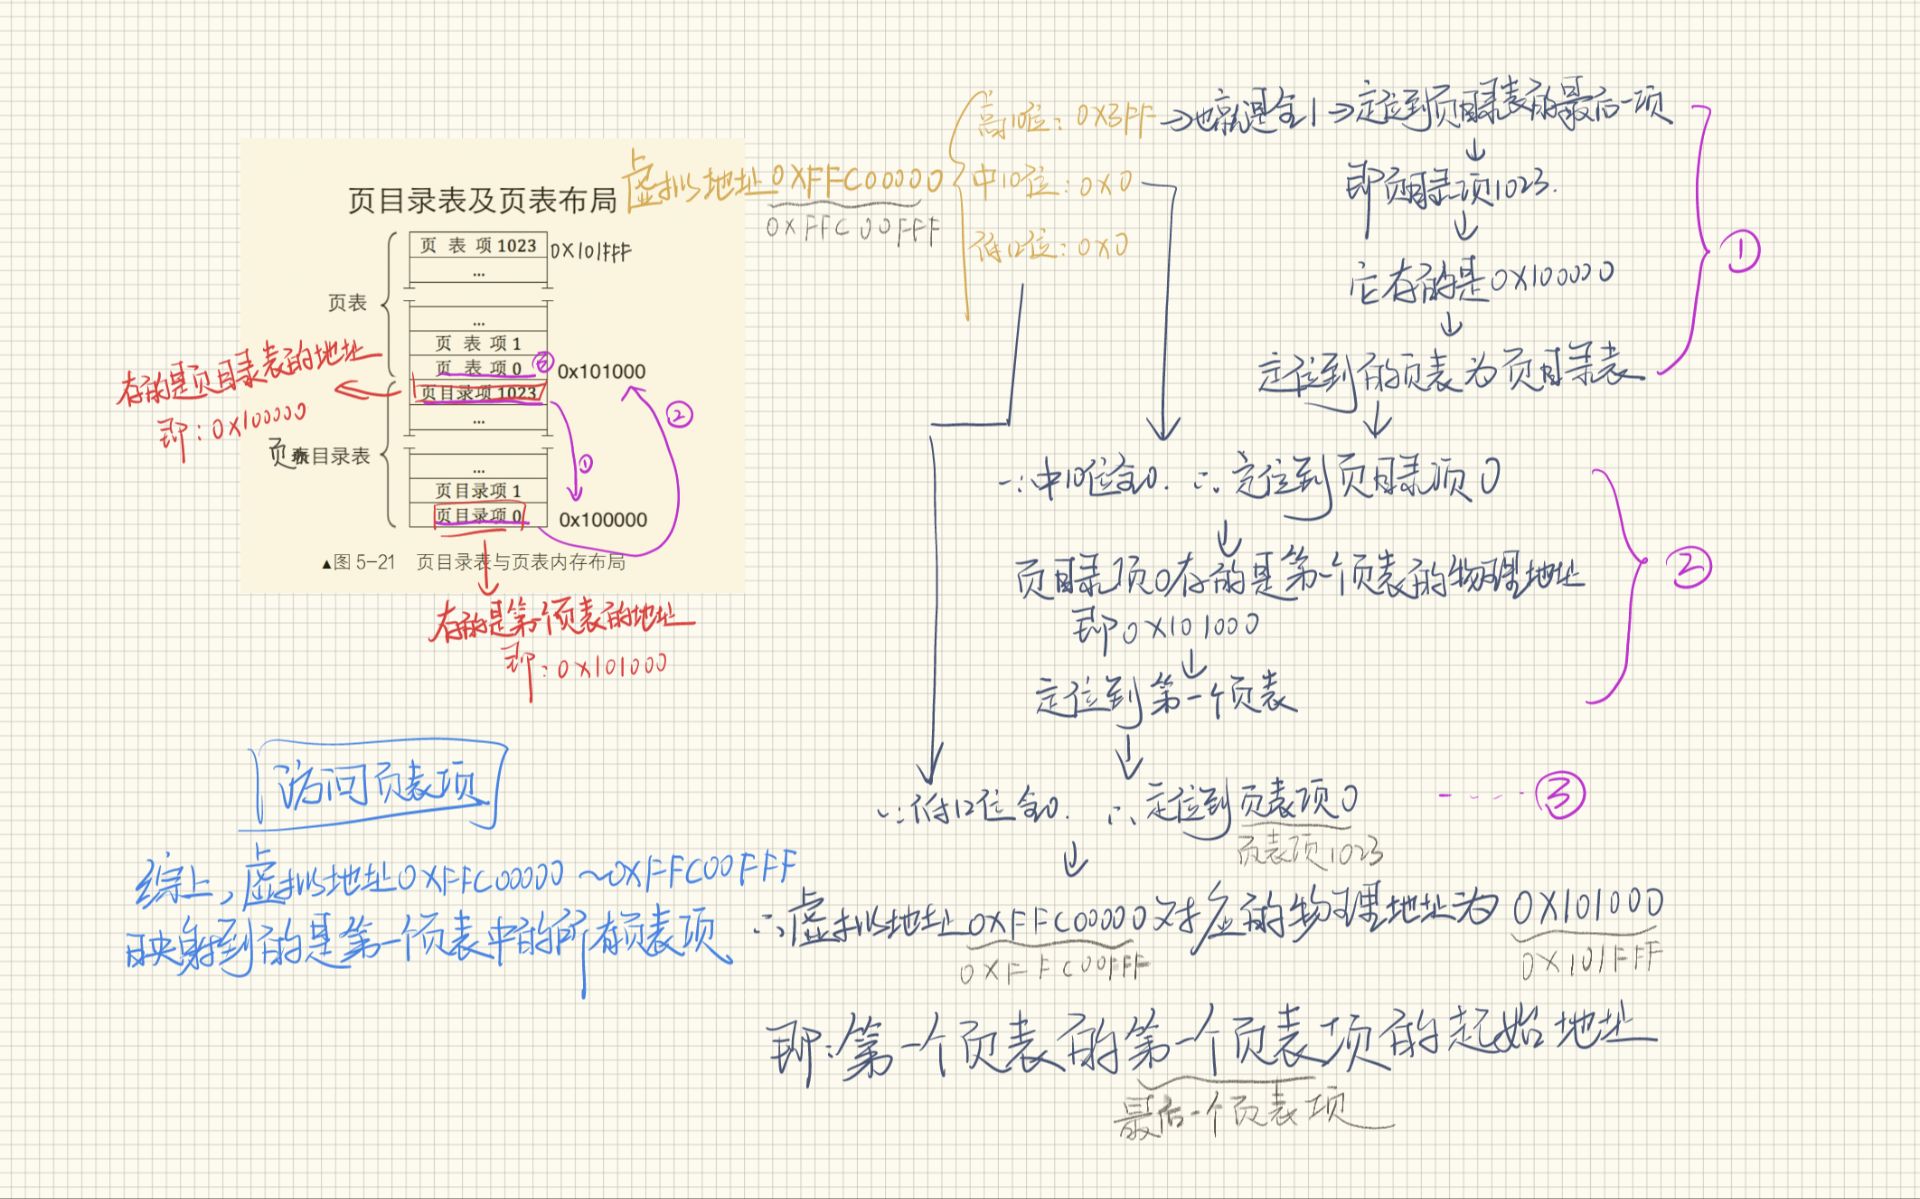 页目录表及页表布局
页表项1023
0X101FFF
...
页表
...
页表项1
页表项0
0x101000
页目录项1023
...
页表目录表
...
页目录项1
页目录项0
0x100000
▲图 5-21 页目录表与页表内存布局
存的是页目录表的地址
即:0X100000
存的是第一个页表的地址
即:0X101000
①
②
③
虚拟地址0XFFC00000
0XFFC00FFF
高10位:0X3FF
中10位:0X0
低12位:0X0
→也就是全1→定位到页目录表的最后一项
↓
即页目录项1023.
↓
它存的是0X100000
↓
定位到的页表为页目录表
①
↓
∵中10位全0. ∴定位到页目录项0
↓
页目录项0存的是第一个页表的物理地址
即0X101000
↓
定位到第一个页表
②
↓
∵低12位全0. ∴定位到页表项0
页表项1023
----③
↓
∴虚拟地址0XFFC00000对应的物理地址为0X101000
0XFFC00FFF
0X101FFF
即:第一个页表的第一个页表项的起始地址
最后一个页表项
访问页表项
综上,虚拟地址0XFFC00000~0XFFC00FFF
映射到的是第一个页表中的所有页表项